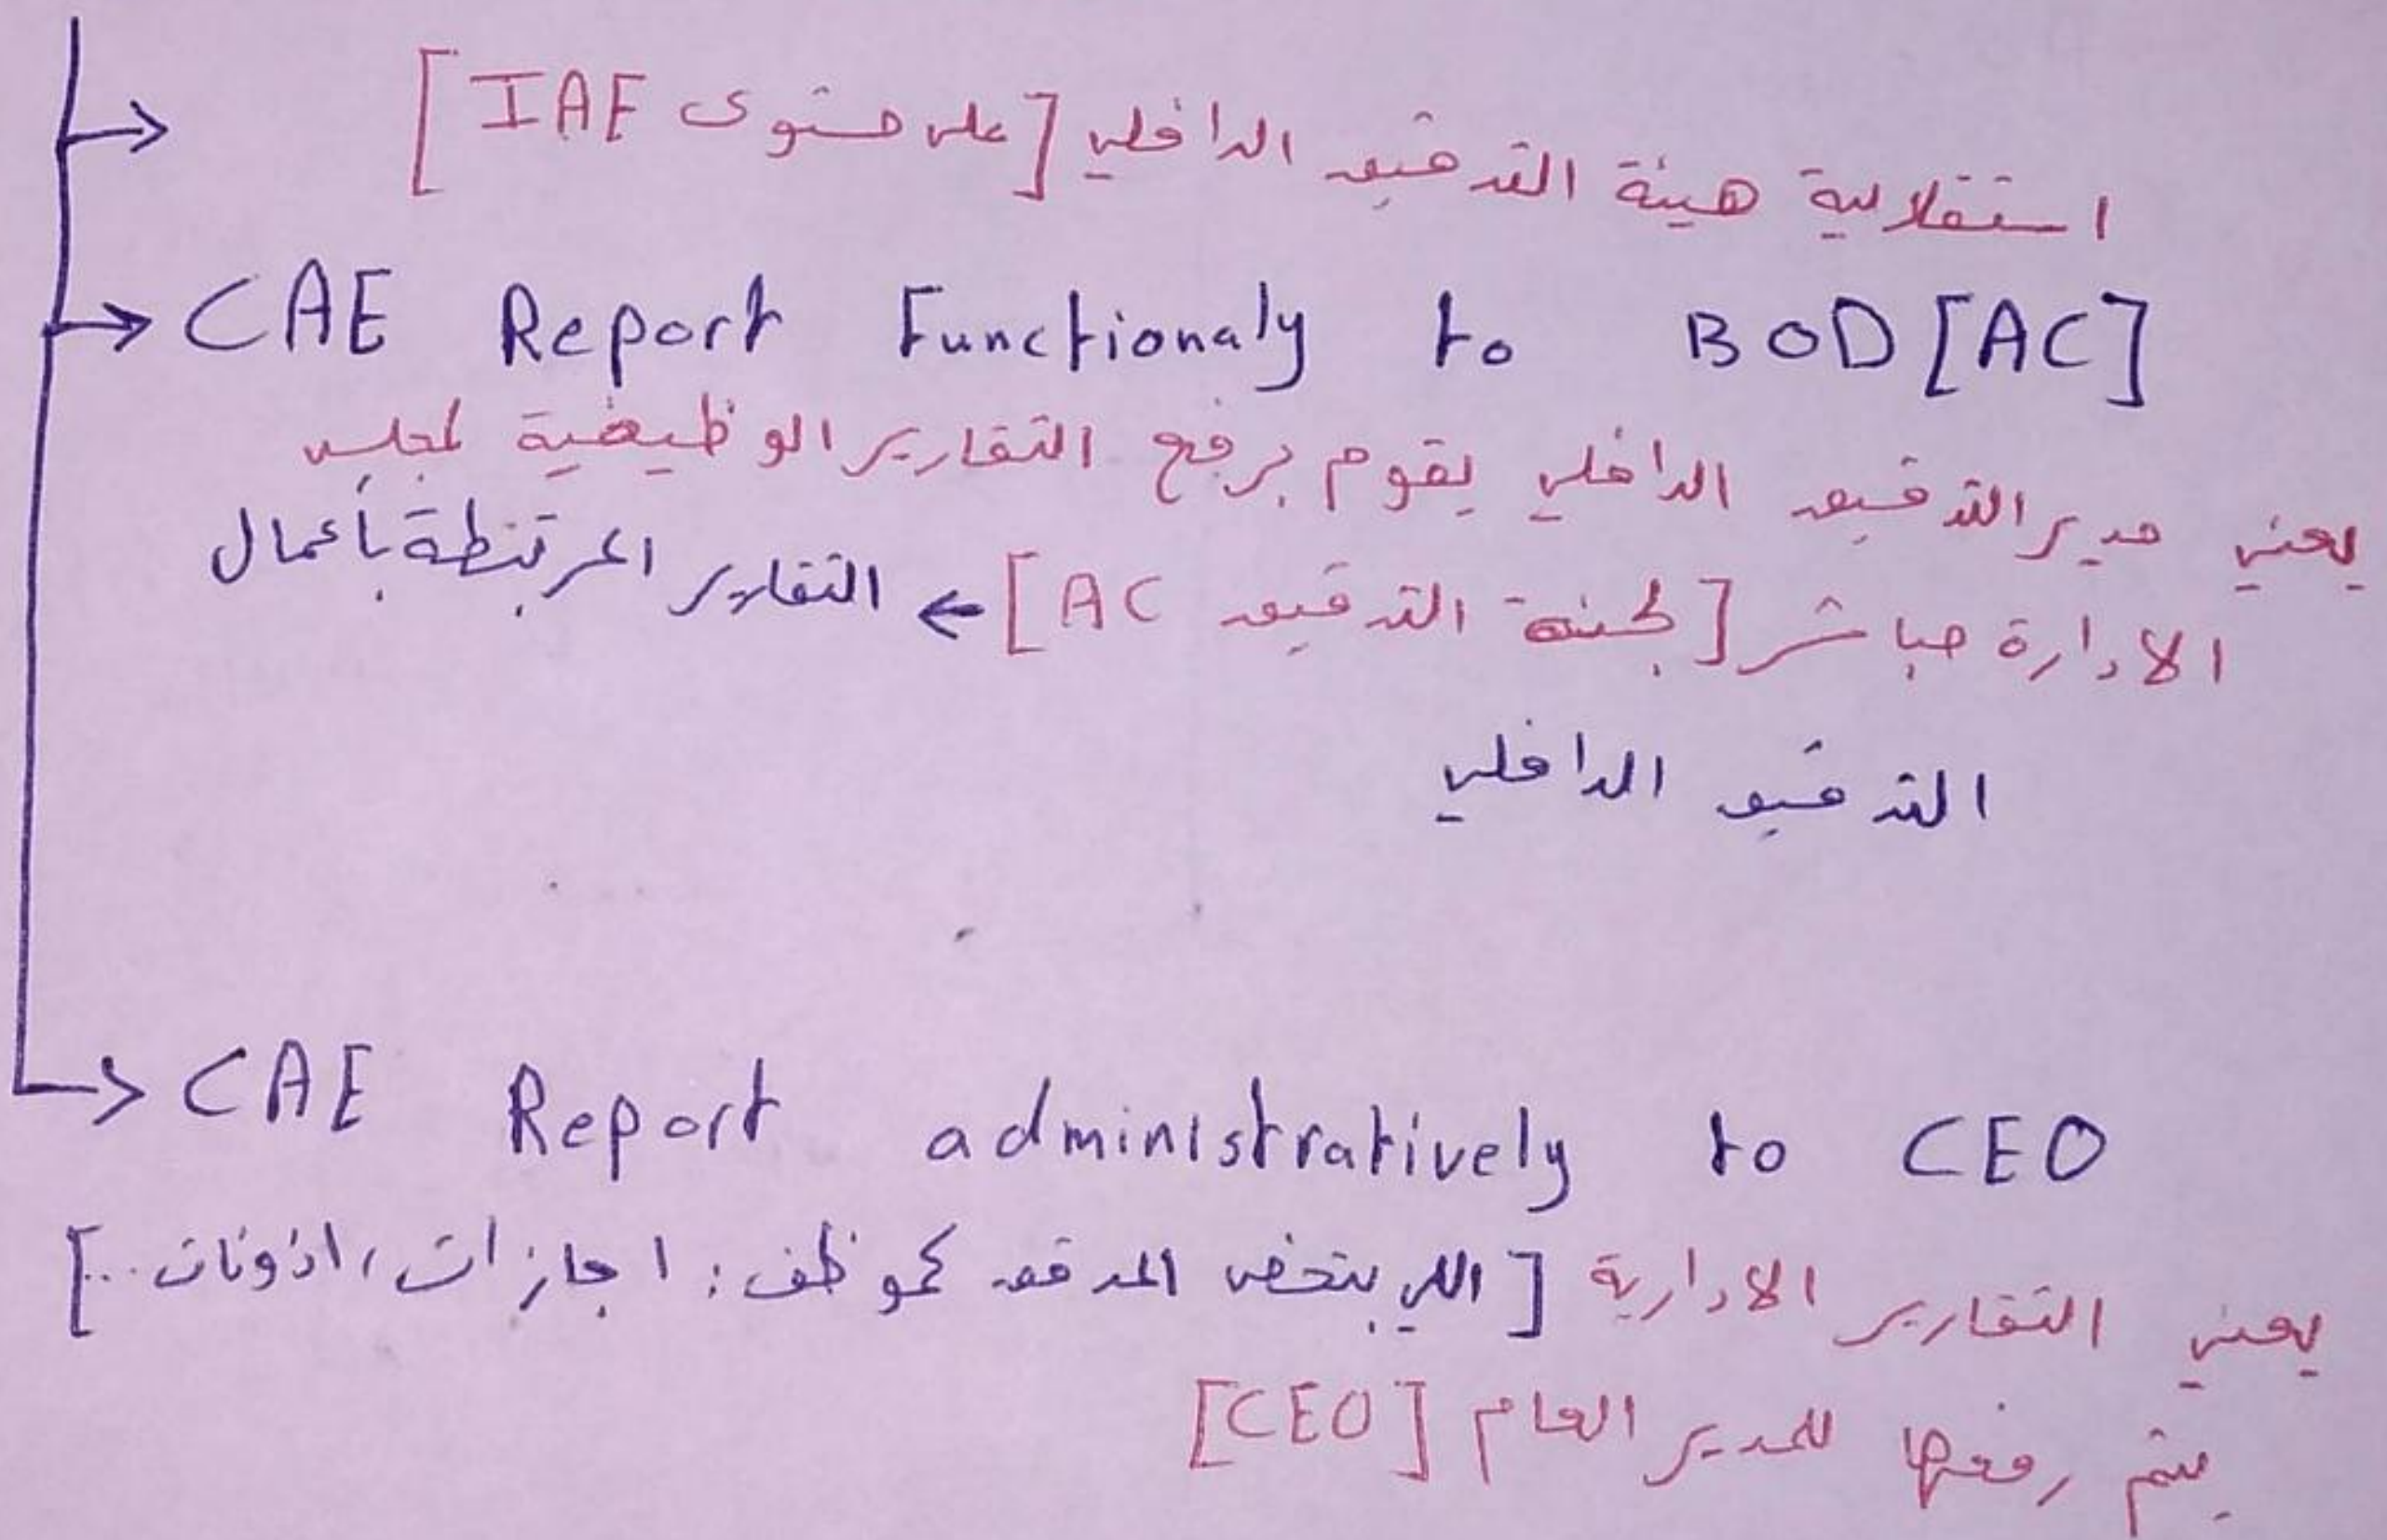 استقلالية هيئة التدقيق الداخلي [على مستوى IAF]
CAE Report Functionaly to BOD [AC]
يعني مدير التدقيق الداخلي يقوم برفع التقارير الوظيفية لمجلس
الادارة مباشر [لجنة التدقيق AC] ← التقارير المرتبطة بأعمال
التدقيق الداخلي
CAE Report administratively to CEO
يعني التقارير الادارية [اللي بتخص المدقق كموظف: اجازات، اذونات...]
يتم رفعها للمدير العام [CEO]